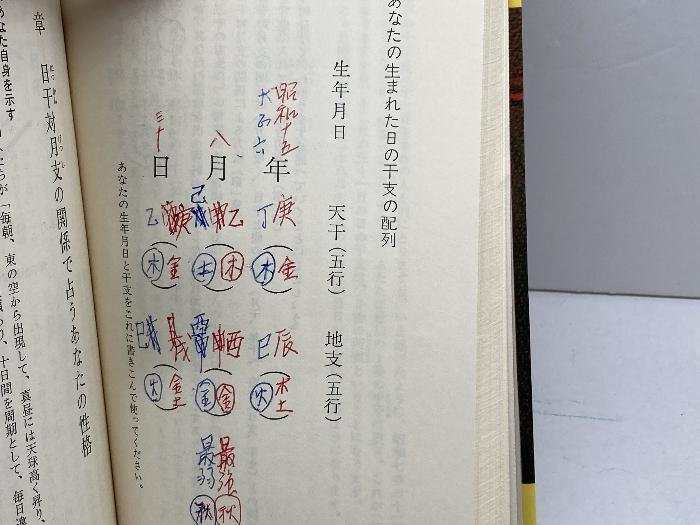 あなたの生まれた日の干支の配列
生年月日
天干(五行)
地支(五行)
昭和十五
大正六
年
庚
丁
(金
木)
辰
巳
土
(火)
八
月
乙
己
(木
土)
酉
(金
金)
最強
最弱
秋
秋
三十
日
乙
(金
木)
巳
(土
火)
あなたの生年月日と干支をこれに書きこんで使ってください。
章 日干対月支の関係で占うあなたの性格
にっかん
げっし
なた自身を示す
「毎朝、東の空から出現して、真昼には天球高く昇り、
十日間を周期として、毎日